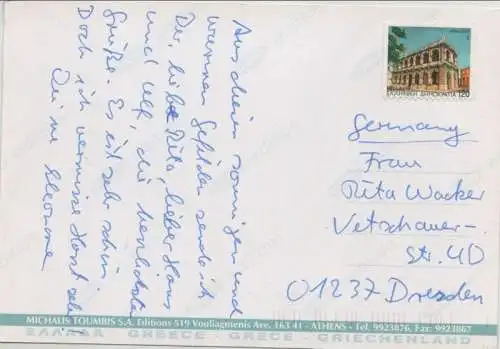 Aus diesen sonnigen und
warmen Gefilden sende ich
Dir, liebe Rita, lieber Hans
und Ulf, die herzlichsten
Grüße. Es ist sehr schön
Doch ich vermisse Horst sehr!
Deine Eleonore
ΕΛΛΗΝΙΚΗ ΔΗΜΟΚΡΑΤΙΑ 120
Germany
Frau
Rita Wacker
Vetschauer-
str. 4D
01237 Dresden
MICHALIS TOUMBIS S.A. Editions 519 Vouliagmenis Ave. 163 41 - ATHENS - Tel. 9923876, Fax: 9923867
ΕΛΛΑΔΑ - GREECE - GRECE - GRIECHENLAND